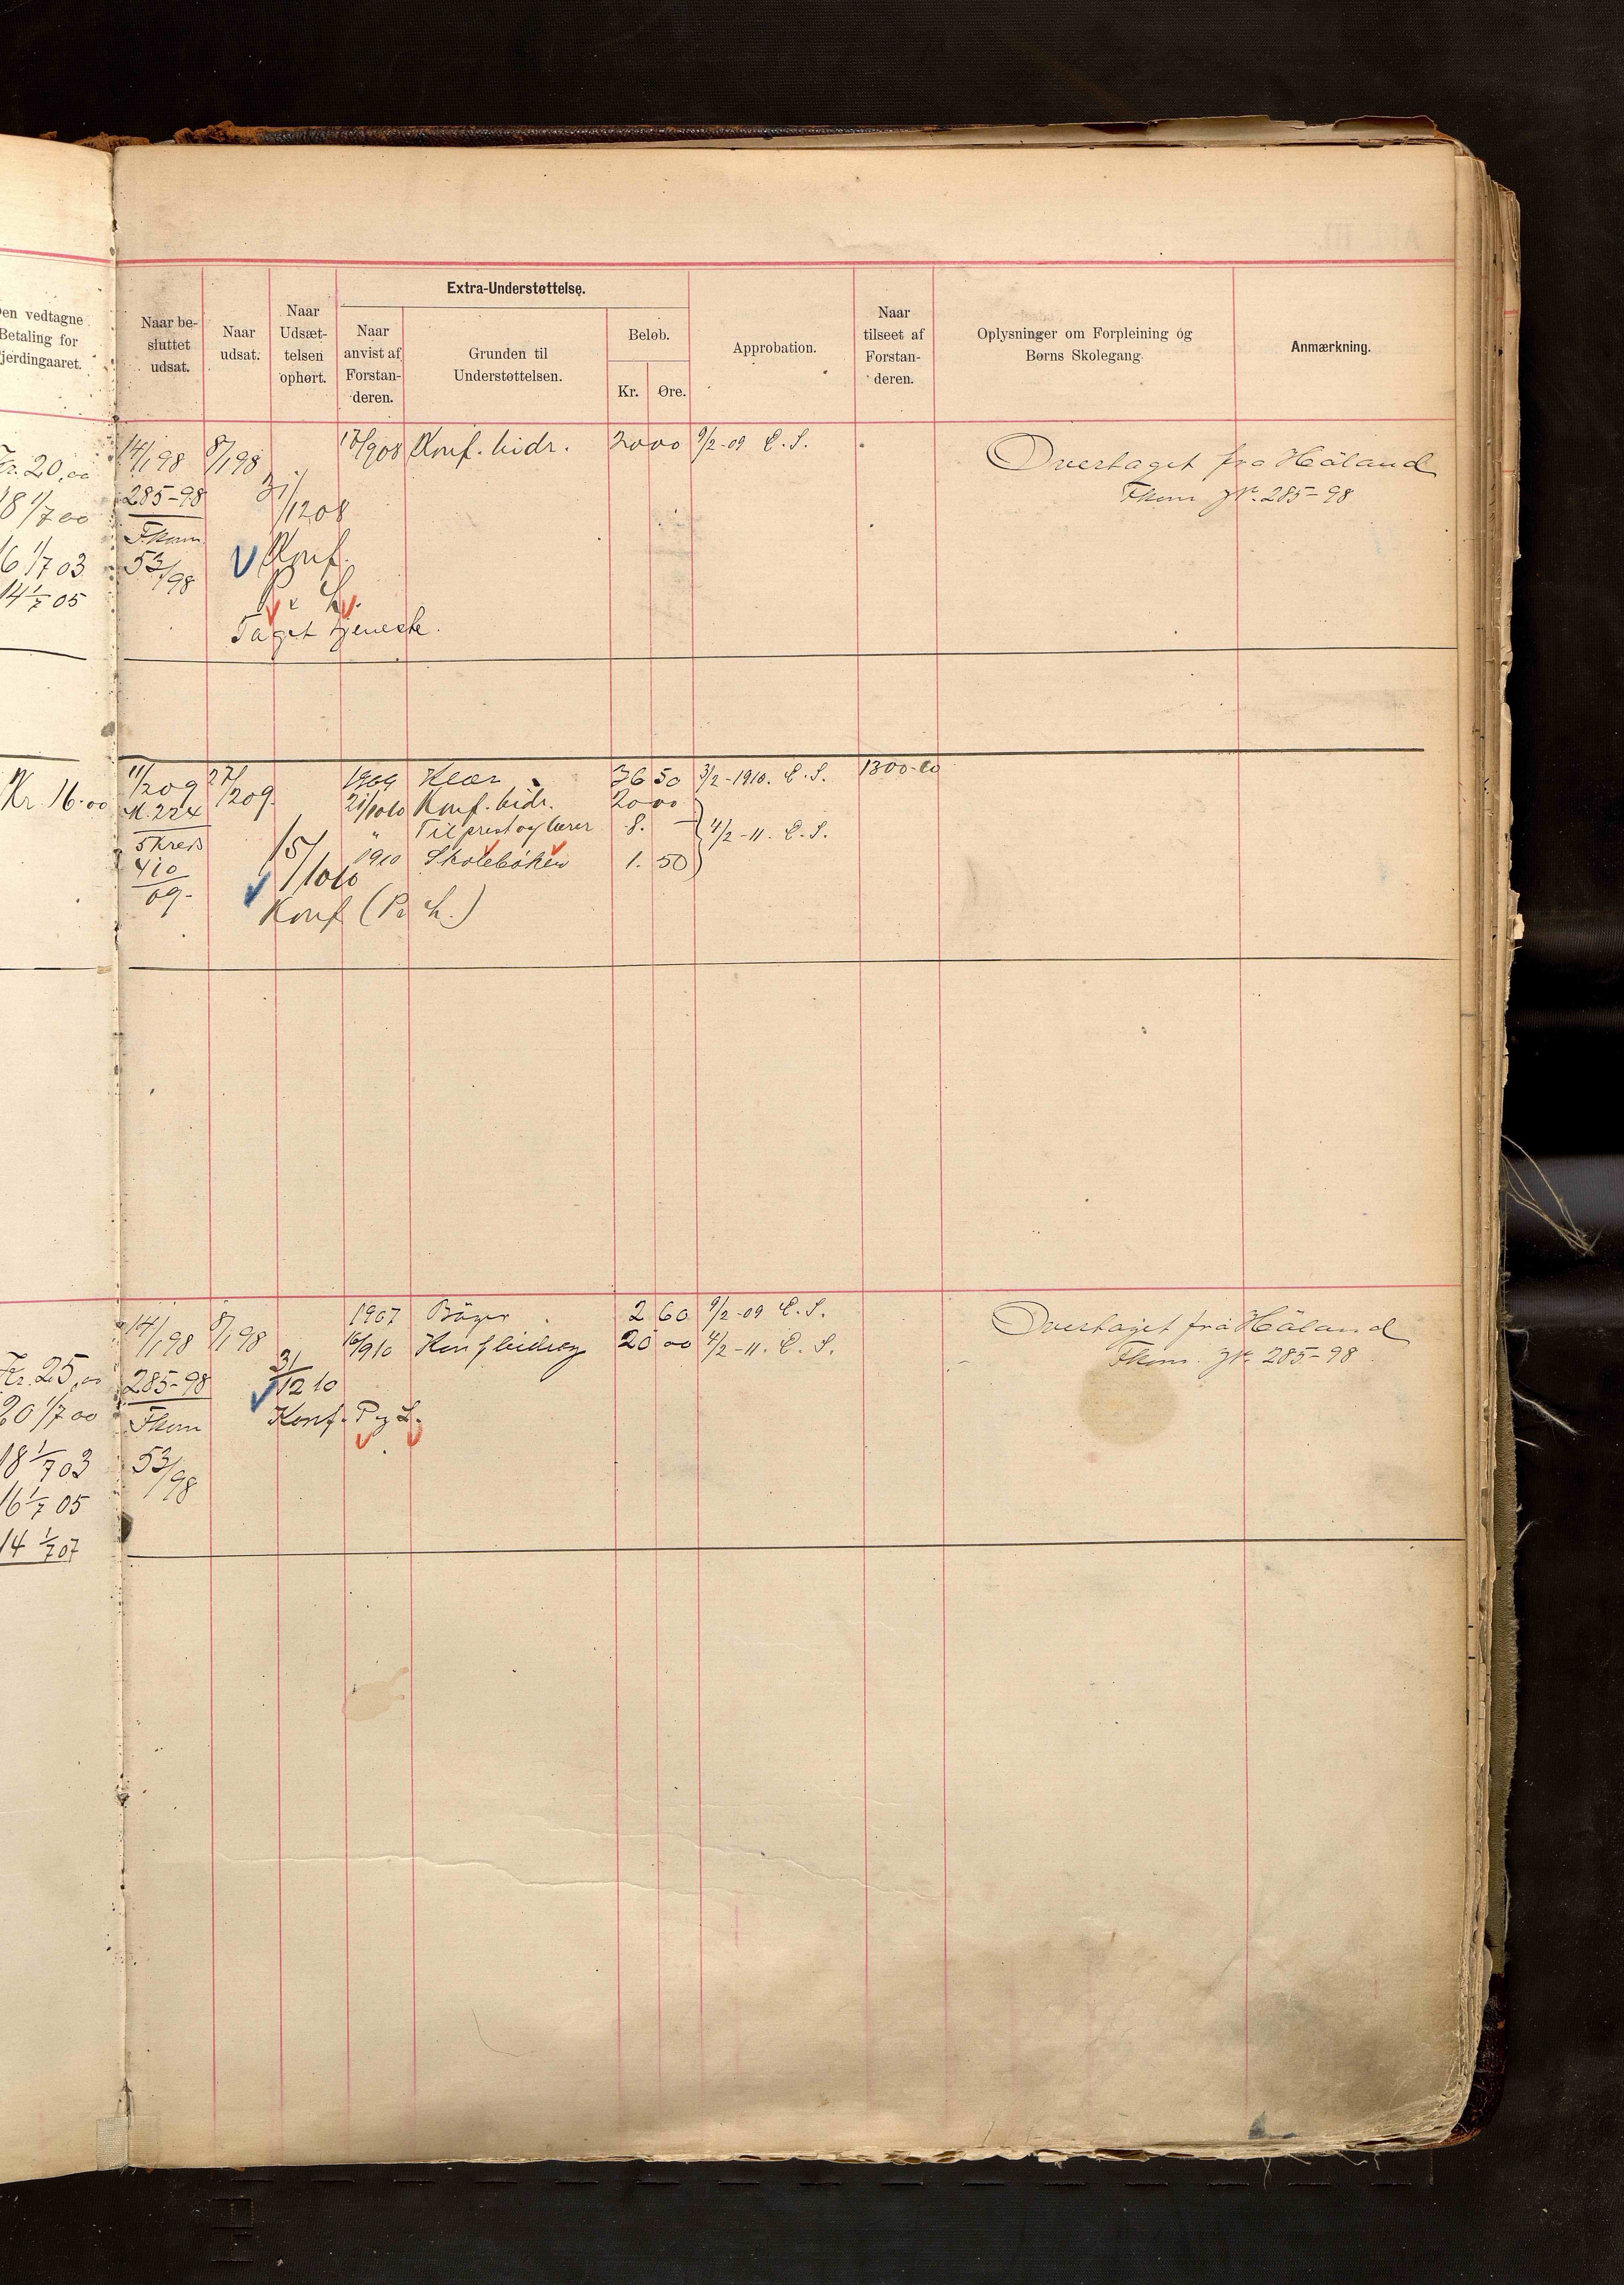 en vedtagne
Betaling for
jerdingaaret.
Naar be-
sluttet
udsat.
Naar
udsat.
Naar
Udsæt-
telsen
ophørt.
Extra-Understøttelse.
Naar
anvist af
Forstan-
deren.
Grunden til
Understøttelsen.
Beløb.
Kr.
Øre.
Approbation.
Naar
tilseet af
Forstan-
deren.
Oplysninger om Forpleining og
Børns Skolegang.
Anmærkning.
Kr. 20,00
18 1/7 00
16 1/7 03
14 1/7 05
14/1 98 8/1 98 Konf. bidr. 20 00 9/2-09 E.S.
285-98
Fkom
53/98
31/12 08
Konf.
P. L.
Taget tjeneste.
Overtaget fra Håland
Fkom Jr. 285-98
Kr. 16.00
11/2 09 27/2 09 1909 Klær 36 50 3/2-1910. E.S. 1300.10
21/10 10 Konf. bidr. 20 00
" Til prest og lærer 8. — 4/2-11. E.S.
1910 Skolebøker 1. 50
410
09.
15/10 10
Konf (P L.)
14/1 98 8/1 98 1907 Bøger 2 60 9/2-09 E.S.
16/9 10 Konfbidrag 20 00 4/2-11. E.S.
Overtaget fra Håland
Fkom. Jr. 285-98
Kr. 25,00
20 1/7 00
18 1/7 03
16 1/7 05
14 1/7 07
285-98
Fkom
53/98
31/12 10
Konf. P og L.